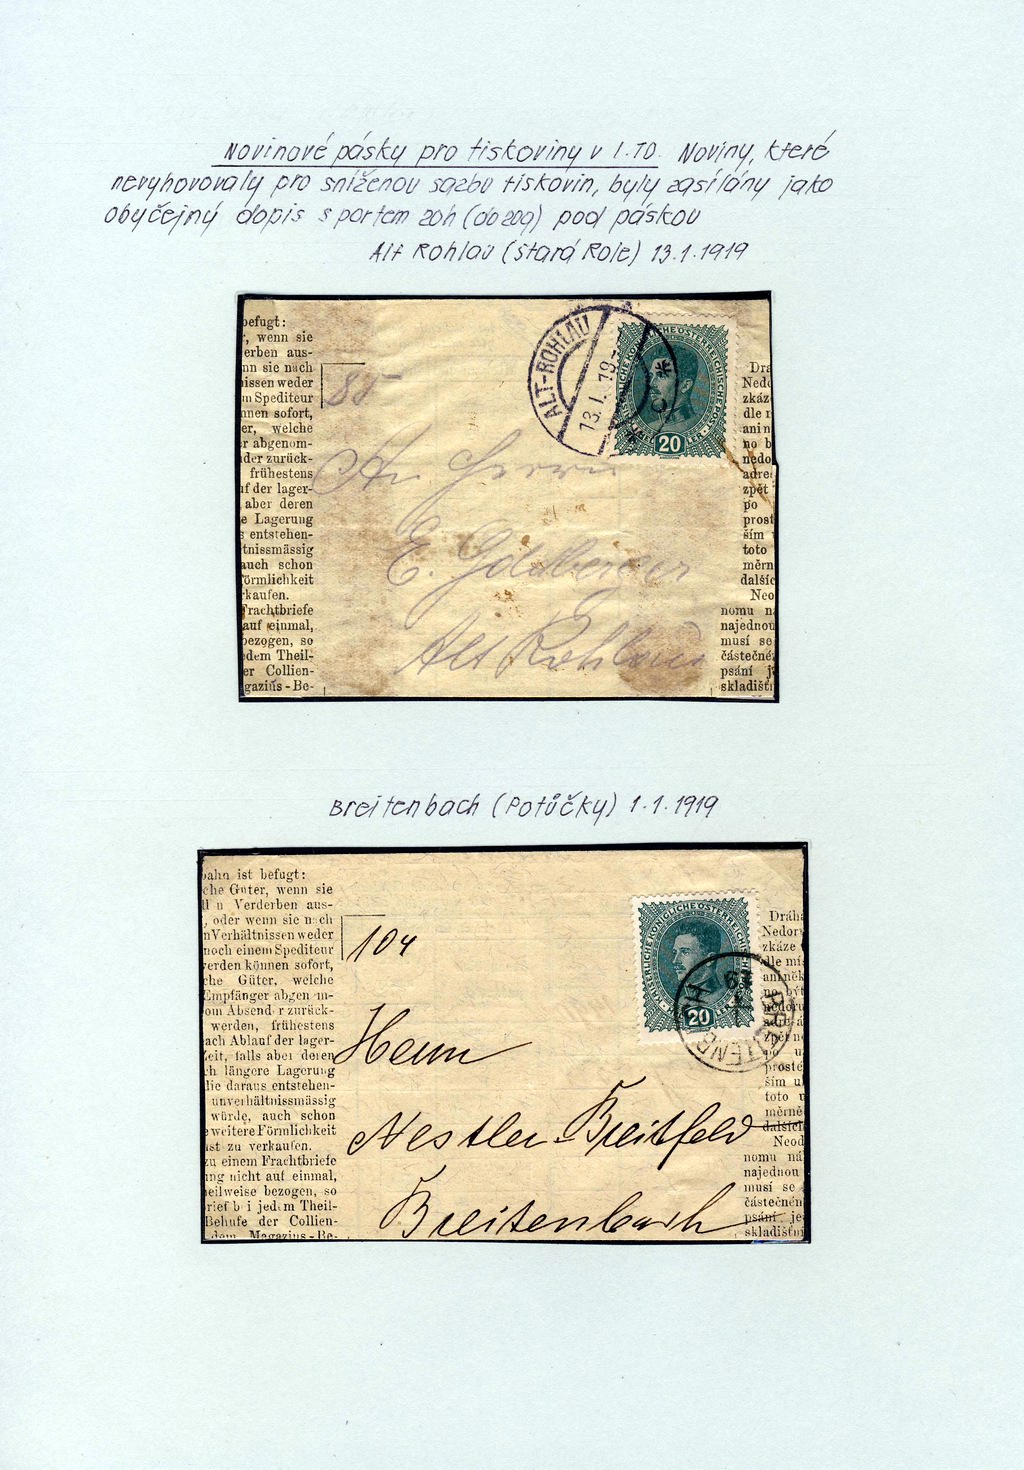 Novinové pásky pro tiskoviny v I.TO. Noviny, které
nevyhovovaly pro sníženou sazbu tiskovin, byly zasílány jako
obyčejný dopis s portem 20h (do 20g) pod páskou
Alt Rohlau (Stará Role) 13.1.1919
befugt:
, wenn sie
erben aus-
nn sie nach
issen weder
m Spediteur
nnen sofort,
er, welche
r abgenom-
der zurück-
frühestens
uf der lager-
aber deren
e Lagerung
s entstehen-
tnissmässig
auch schon
örmlichkeit
kaufen.
Frachtbriefe
auf einmal,
bezogen, so
edem Theil-
er Collien-
gazins-Be-
85
An Herrn
E. Goldberger
Alt Rohlau
ALT-ROHLAU
13.I.19
KAISERLICHE KÖNIGLICHE ÖSTERREICHISCHE POST
20
Drá
Nedo
zkáz
dle
ani n
no b
nedo
adre
zpět
po
prost
ším
toto
měrn
dalšíc
Neo
nomu n
najednou
musí se
částečné
psání j
skladištn
Breitenbach (Potůčky) 1.1.1919
bahn ist befugt:
che Güter, wenn sie
ll n Verderben aus-
, oder wenn sie nach
n Verhältnissen weder
noch einem Spediteur
erden können sofort,
che Güter, welche
Empfänger abgen m-
om Absender zurück-
werden, frühestens
ach Ablauf der lager-
eit, falls aber deren
ch längere Lagerung
die daraus entstehen-
unverhältnissmässig
würde, auch schon
weitere Förmlichkeit
st zu verkaufen.
zu einem Frachtbriefe
ng nicht auf einmal,
eilweise bezogen, so
rief b i jedem Theil-
Behufe der Collien-
dem Magazins-Be-
104
Herrn
Nestler-Breitfeld
Breitenbach
KAISERLICHE KÖNIGLICHE ÖSTERREICHISCHE POST
20
BREITENBACH
Dráha
Nedor
zkáze
dle mí
ani něk
no být
nedoru
adresá
zpět n
po u
prosté
ším u
toto u
měrně
dalších
Neod
nomu ná
najednou
musí se
částečném
psání je
skladištní